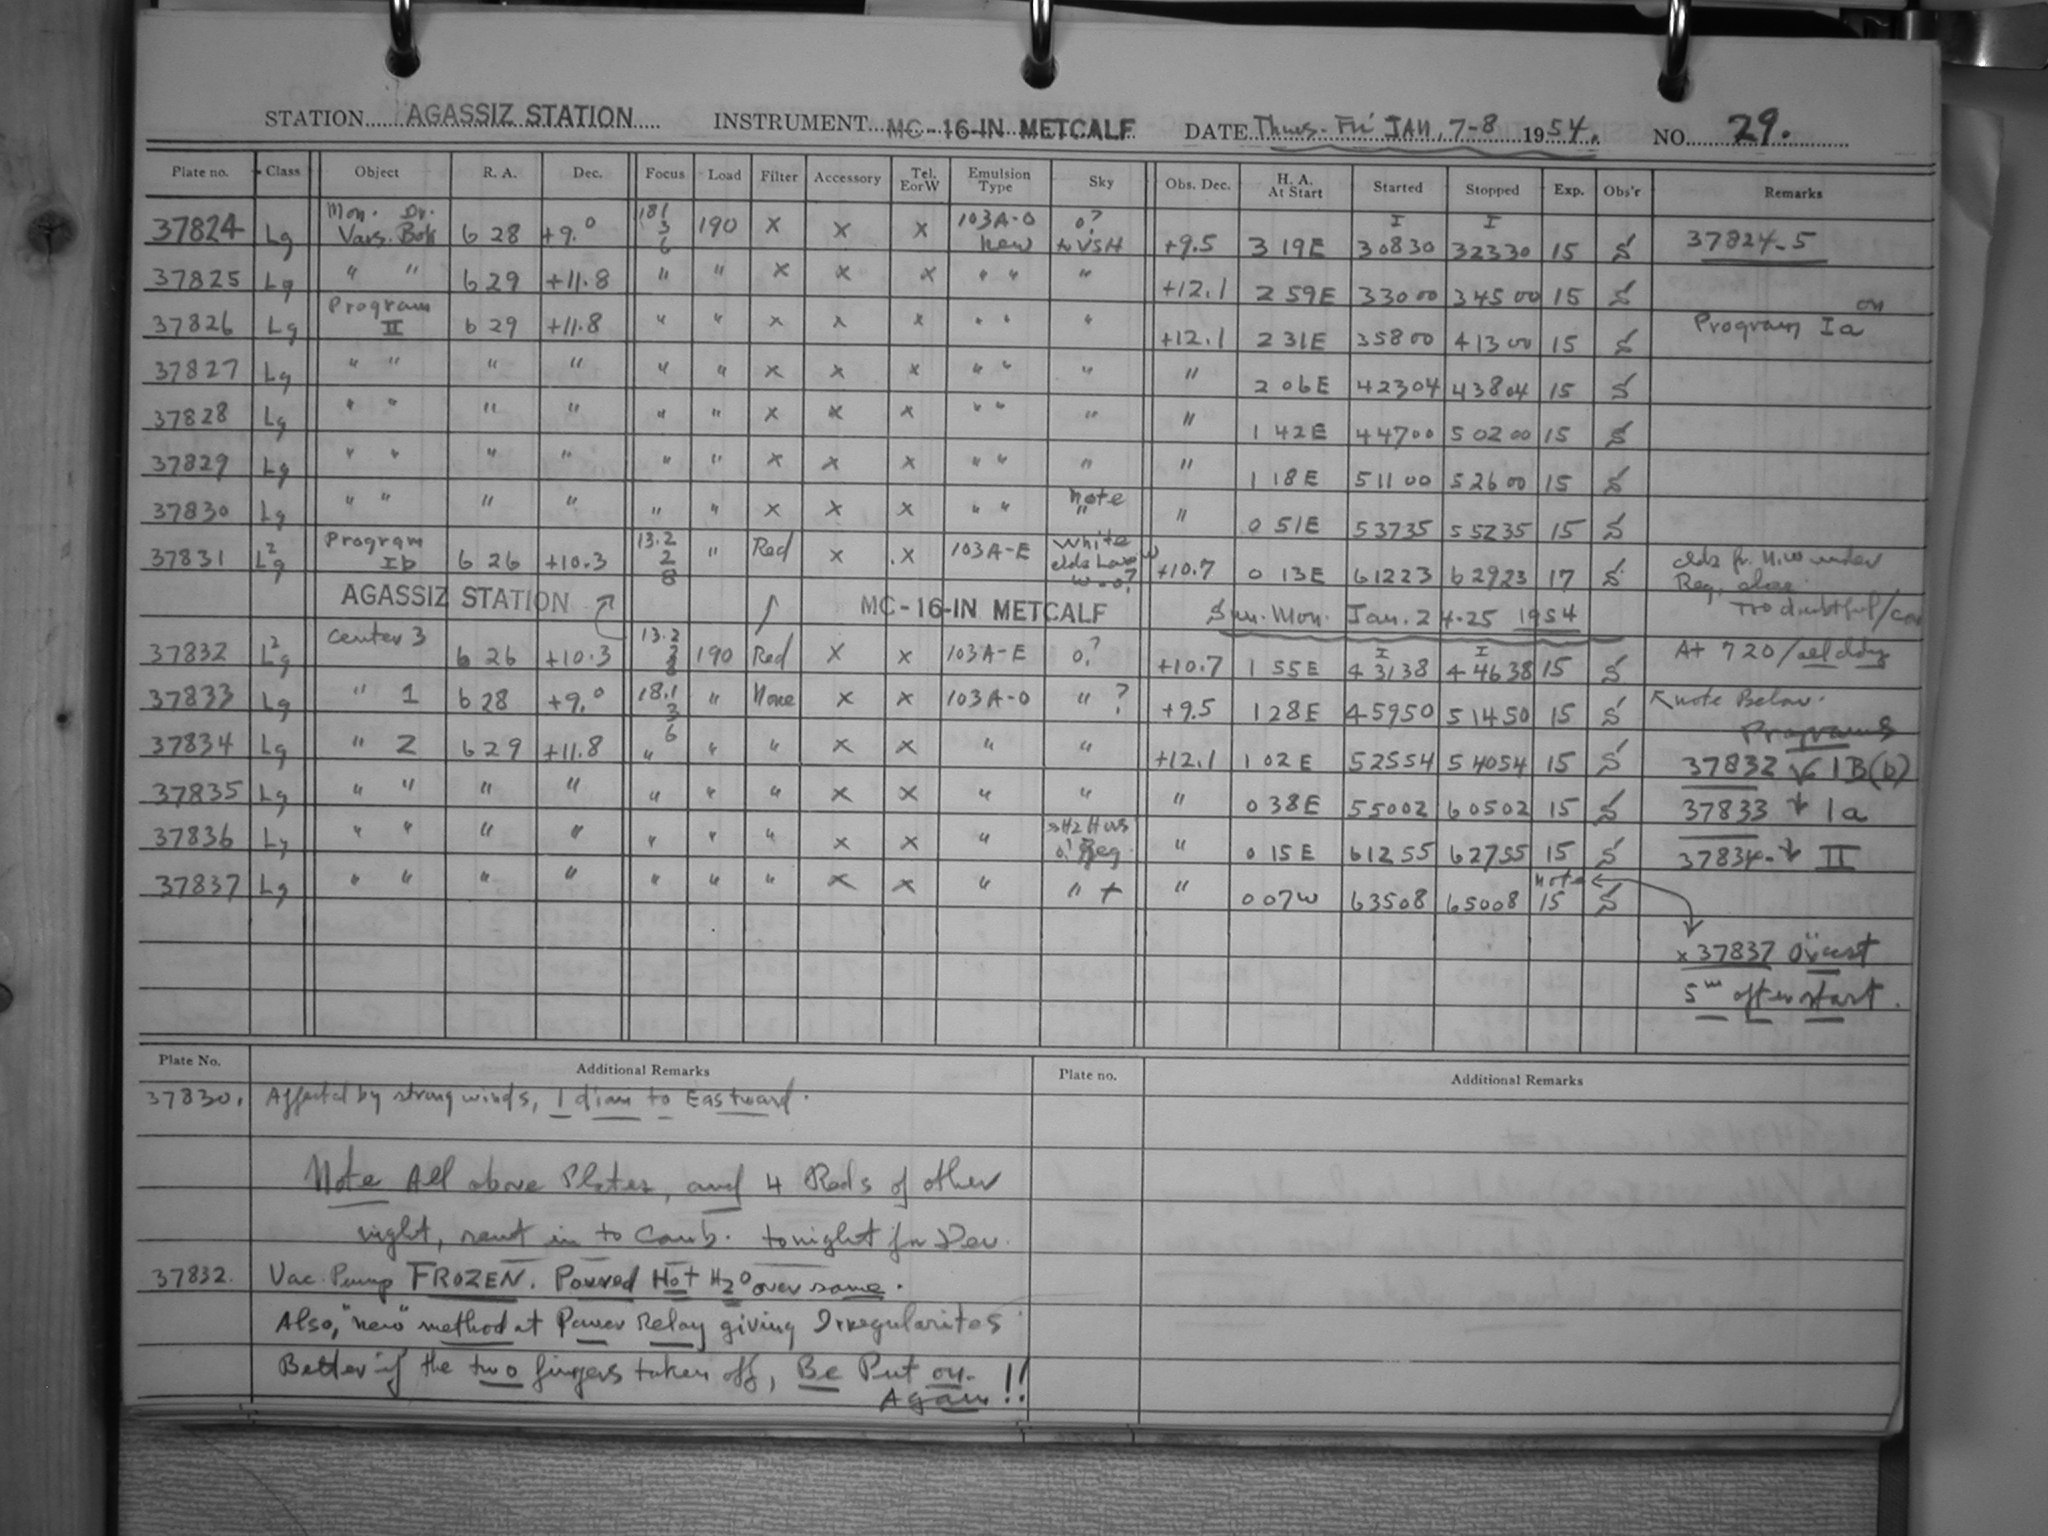 STATION AGASSIZ STATION INSTRUMENT MC-16-IN METCALF DATE Thurs-Fri JAN. 7-8 1954. NO. 29.
Plate no. Class Object R. A. Dec. Focus Load Filter Accessory Tel. EorW Emulsion Type Sky Obs. Dec. H. A. At Start Started Stopped Exp. Obs'r Remarks
37824 Lg Mon. Dr. Vars. Bok 6 28 +9.0 18.1 3 6 190 x x x 103A-O New 0? +9.5 3 19E 30830 32330 15 37824-5
37825 Lg " " 6 29 +11.8 " " x x x " " " +12.1 2 59E 33000 34500 15
37826 Lg Program II 6 29 +11.8 " " x x x " " " +12.1 2 31E 35800 41300 15 Program Ia on
37827 Lg " " " " " " x x x " " " " 2 06E 42304 43804 15
37828 Lg " " " " " " x x x " " " " 1 42E 44700 50200 15
37829 Lg " " " " " " x x x " " " " 1 18E 51100 52600 15
37830 Lg " " " " " " x x x " " Note " " 0 51E 53735 55235 15
37831 L²g Program Ib 6 26 +10.3 13.2 2 8 " Red x x 103A-E White clds Low W +10.7 0 13E 61223 62923 17 clds fr. N.W under Reg. also. Too doubtful
AGASSIZ STATION MC-16-IN METCALF Sun. Mon. Jan. 24-25 1954
37832 L²g Center 3 6 26 +10.3 13.2 2 8 190 Red x x 103A-E 0? +10.7 1 55E 43138 44638 15 At 720/all cldy
37833 Lg " 1 6 28 +9.0 18.1 3 6 " None x x 103A-O " ? +9.5 1 28E 45950 51450 15 note Below.
Programs
37834 Lg " 2 6 29 +11.8 " " " x x " " +12.1 1 02E 52554 54054 15 37832 1B(b)
37835 Lg " " " " " " " x x " " " 0 38E 55002 60502 15 37833 Ia
37836 Lg " " " " " " " x x " 0! Reg. " 0 15E 61255 62755 15 37834 II
37837 Lg " " " " " " " x x " " + " 0 07W 63508 65008 note 15
x 37837 Ov'cast
5m after start.
Plate No. Additional Remarks Plate no. Additional Remarks
37830. Affected by strong winds, 1 diam to Eastward.
Note All above Plates, and 4 Reds of other
night, sent in to Camb. tonight for Dev.
37832. Vac. Pump FROZEN. Poured Hot H2O over same.
Also, "new" method at Power Relay giving Irregularites
Better if the two fingers taken off, Be Put on.
Again!!